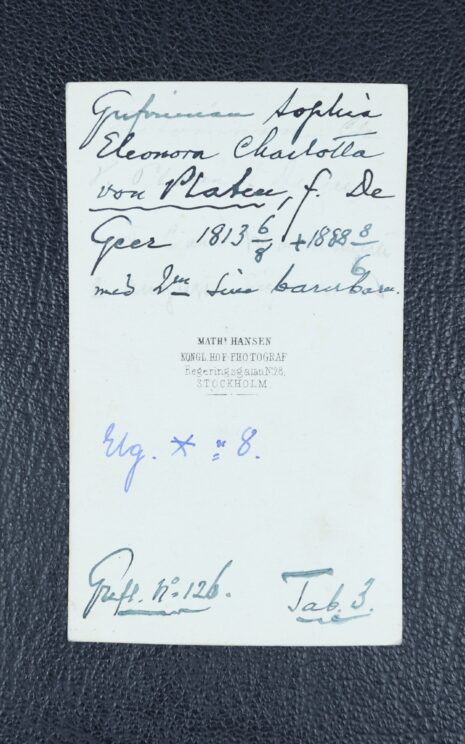 Grefvinnan Sophia
Eleonora Charlotta
von Platen, f. De
Geer 1813 6/8 +1888 8/6
med 2ne sina barnbarn.
MATHS HANSEN
KONGL. HOF-FHOTOGRAF
Regeringsgatan No28,
STOCKHOLM
Elg. * " 8.
Grefl. No. 126.
Tab. 3.